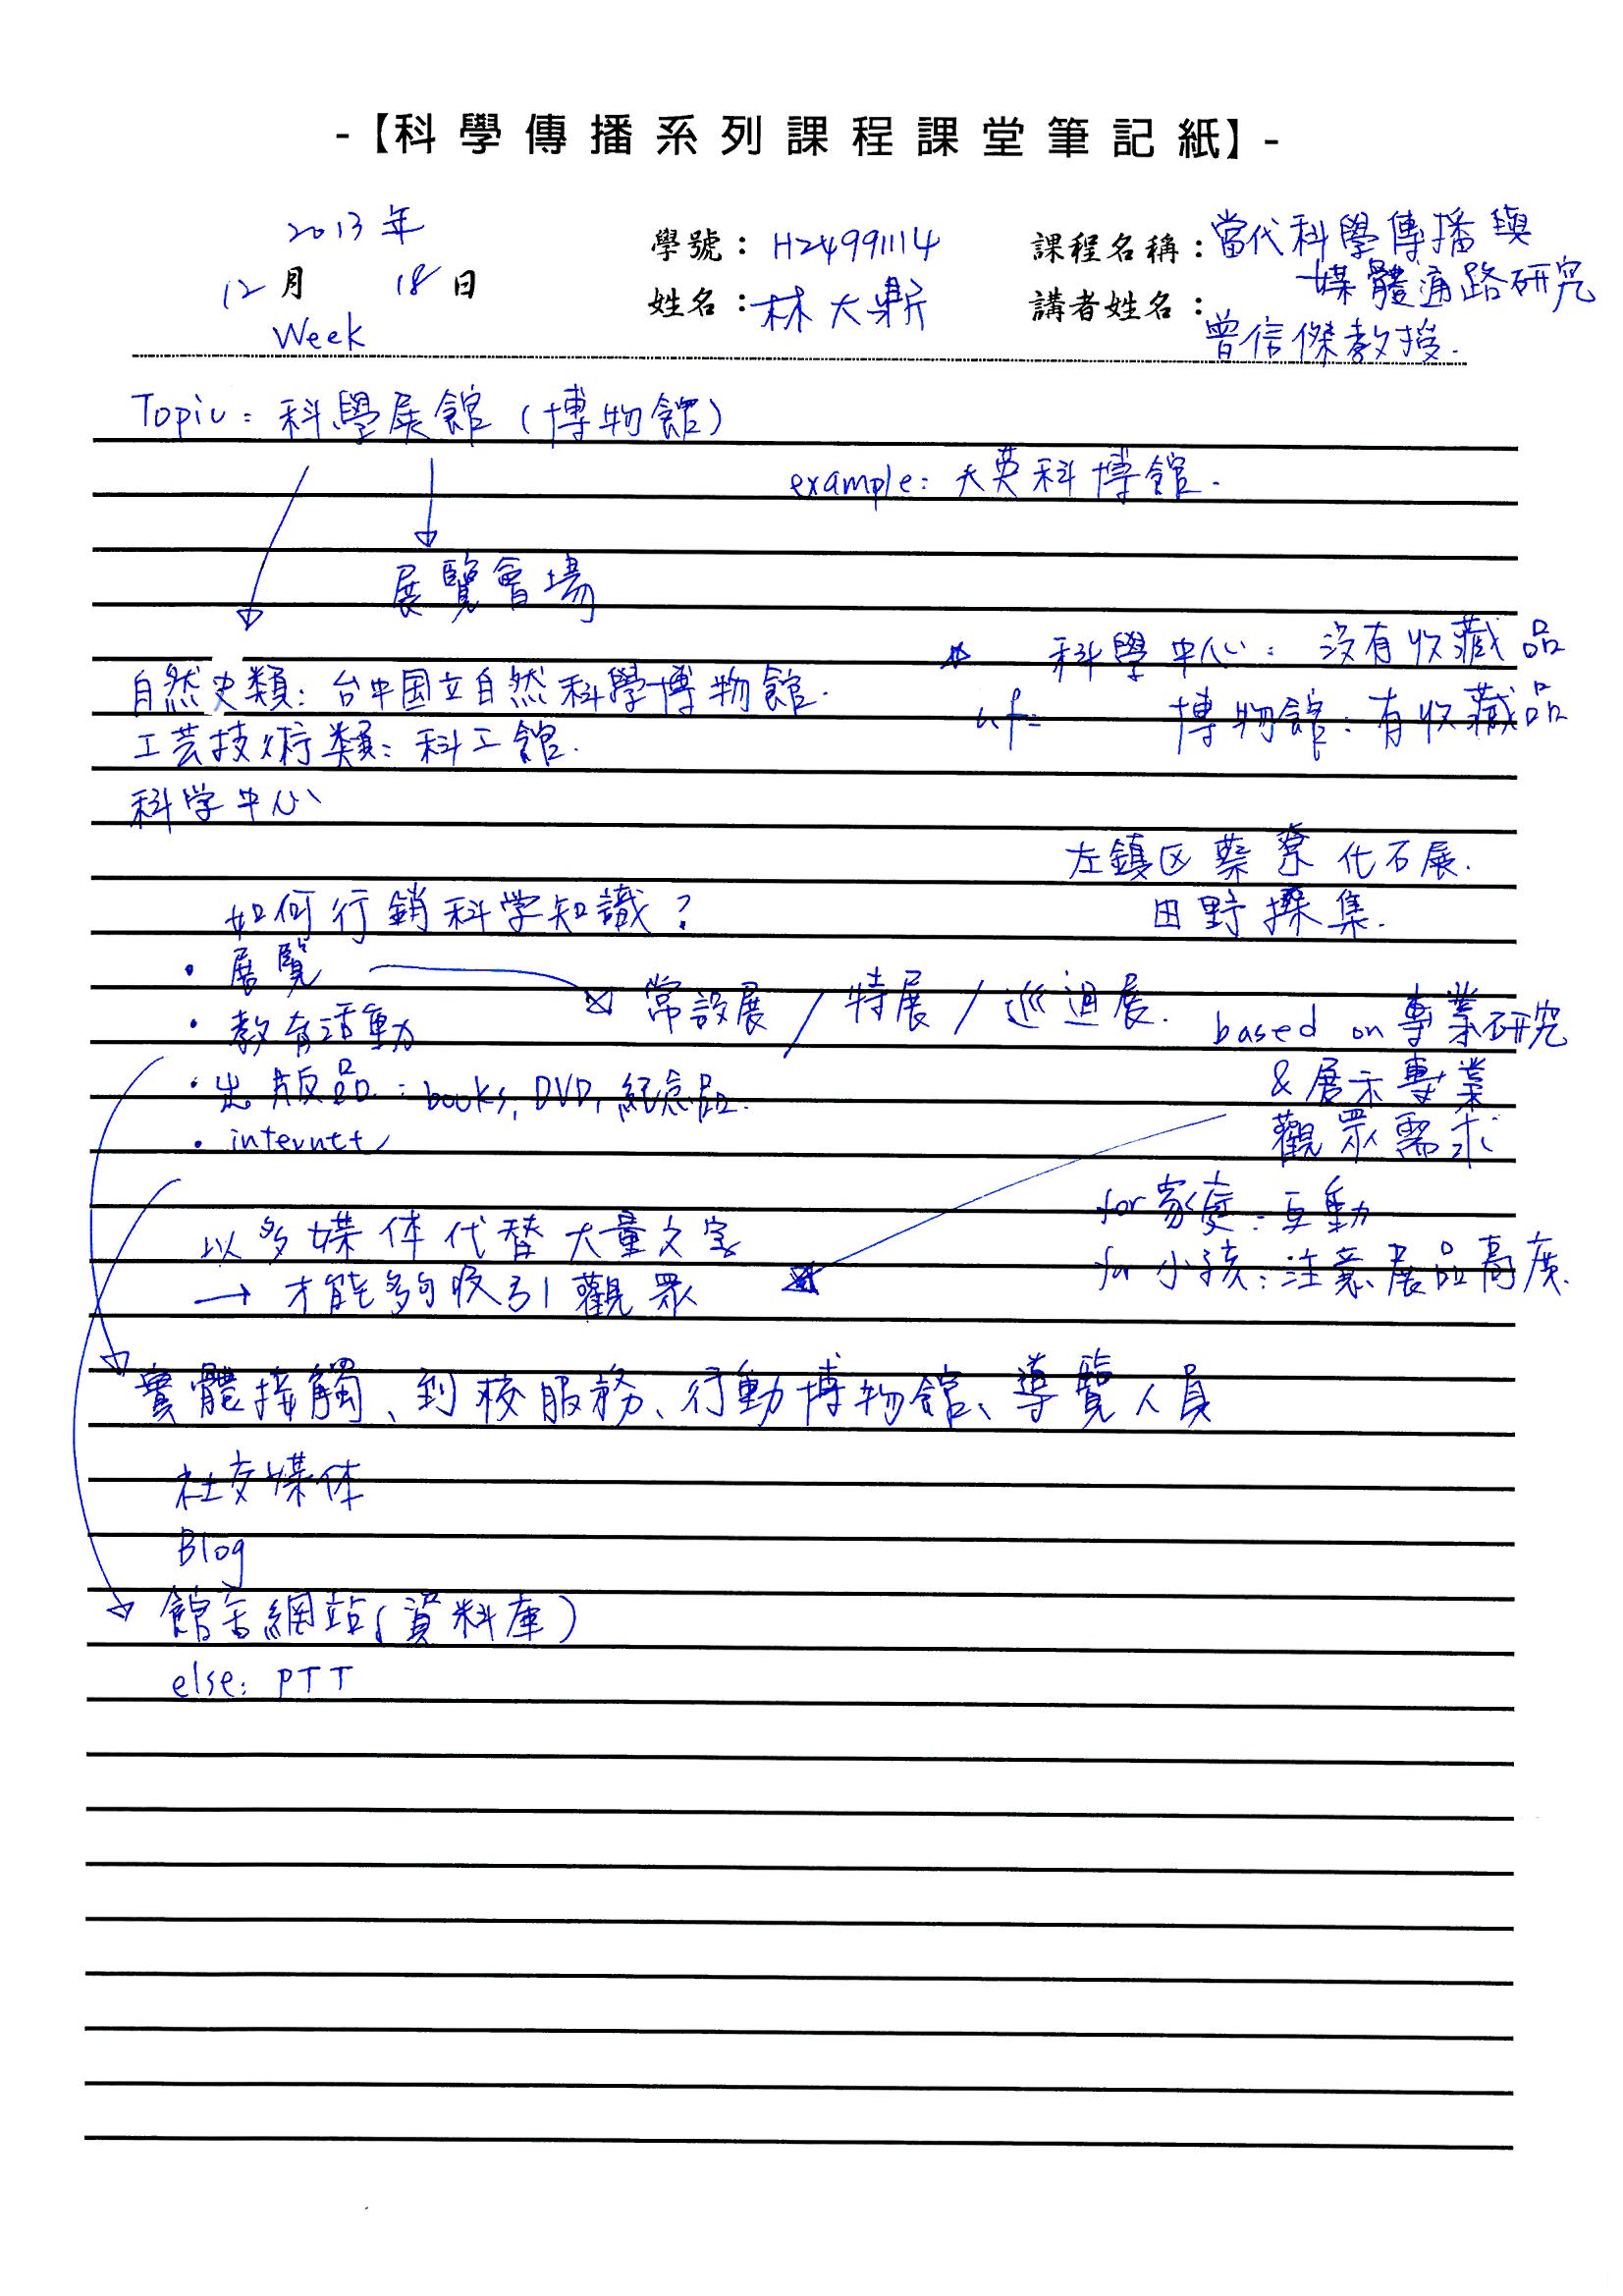 -【科學傳播系列課程課堂筆記紙】-
2013年
12月 18日
Week
學號：H24991114
姓名：林大鼎
課程名稱：當代科學傳播與
媒體通路研究
講者姓名：
曾信傑教授.
Topic: 科學展館(博物館)
example: 大英科博館.
展覽會場
自然史類: 台中国立自然科學博物館.
工芸技術類: 科工館.
科学中心
科學中心: 沒有收藏品
博物館: 有收藏品
左鎮区蔡寮化石展.
田野採集.
如何行銷科学知識?
· 展覽
常設展/特展/巡迴展.
· 教育活動
· 出版品: books, DVD, 紀念品.
· internet
based on 專業研究
& 展示專業
觀眾需求
for 家庭: 互動
for 小孩: 注意展品高度.
以多媒体代替大量文字
→ 才能夠吸引觀眾
實體接觸、到校服務、行動博物館、導覽人員
社交媒体
Blog
館舍網站(資料庫)
else: PTT